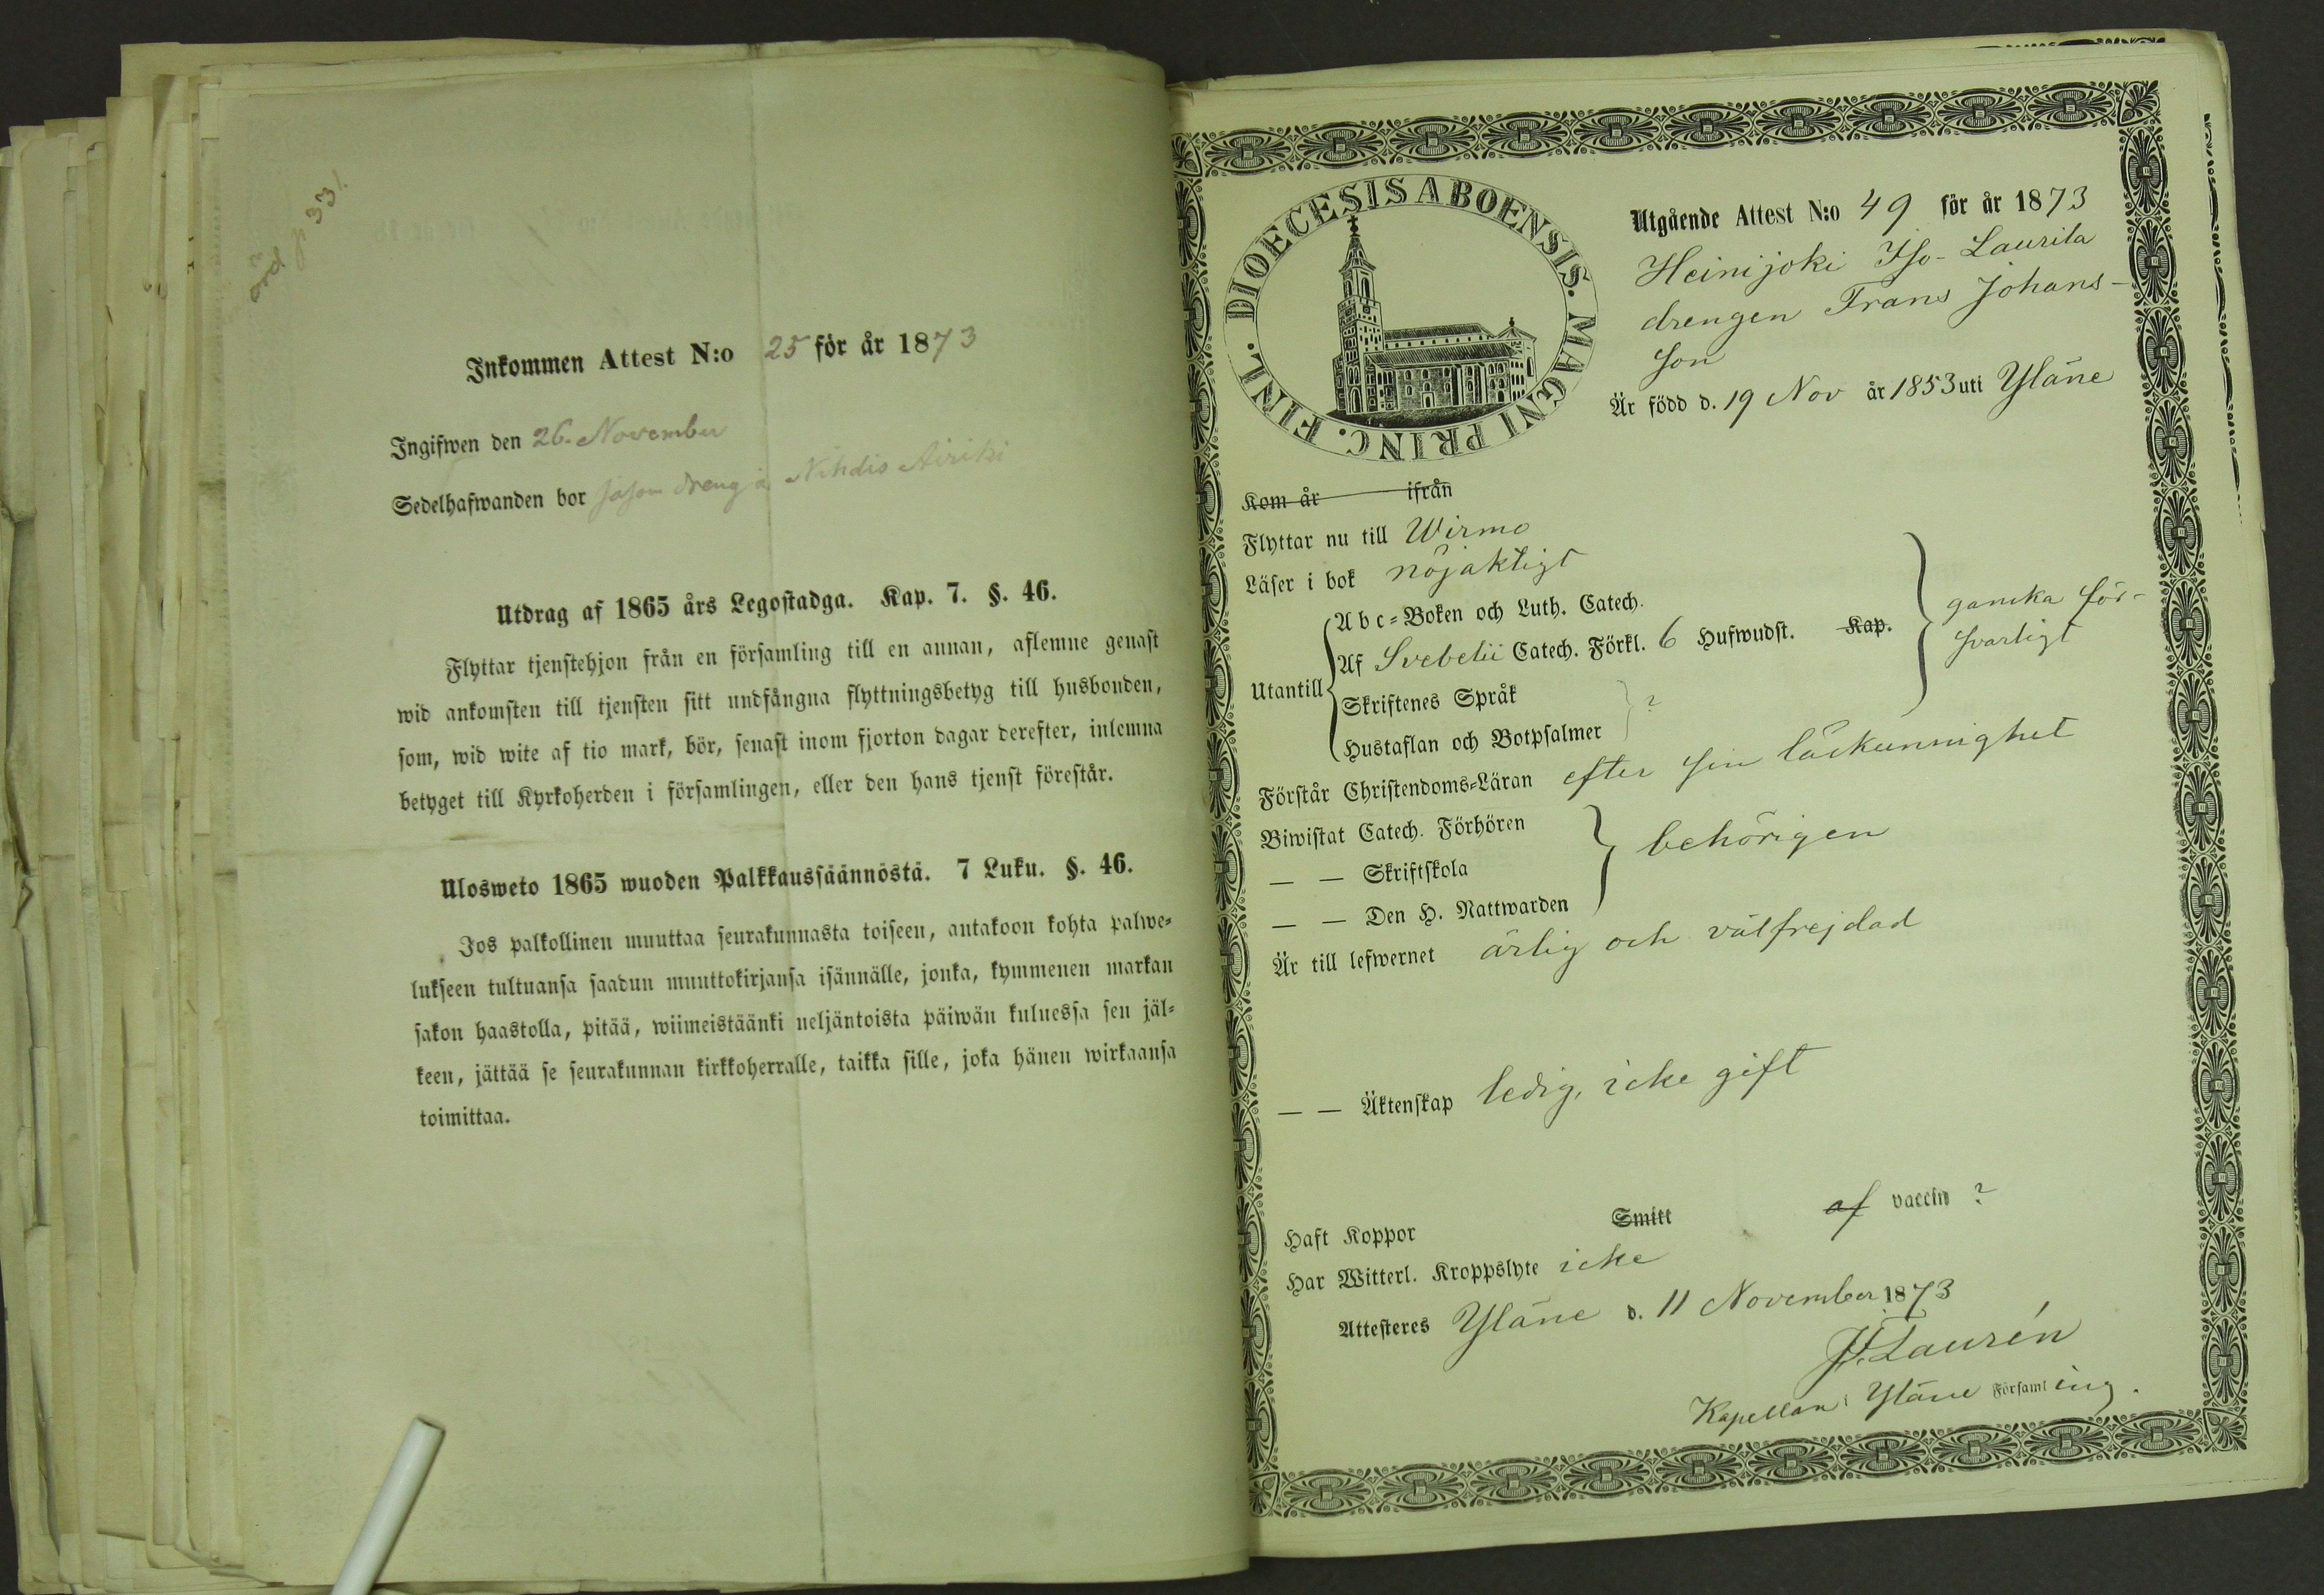 öfvd p 331.
Inkommen Attest N:o 25 för år 1873
Ingifwen den 26. November
Sedelhafwanden bor såsom dreng å Nihdis Airiki
Utdrag af 1865 års Legostadga. Kap. 7. §. 46.
Flyttar tjenstehjon från en församling till en annan, aflemne genast
wid ankomsten till tjensten sitt undfångna flyttningsbetyg till husbonden,
som, wid wite af tio mark, bör, senast inom fjorton dagar derefter, inlemna
betyget till Kyrkoherden i församlingen, eller den hans tjenst förestår.
Ulosweto 1865 wuoden Palkkaussäännöstä. 7 Luku. §. 46.
Jos palkollinen muuttaa seurakunnasta toiseen, antakoon kohta palwe-
lukseen tultuansa saadun muuttokirjansa isännälle, jonka, kymmenen markan
sakon haastolla, pitää, wiimeistäänki neljäntoista päiwän kuluessa sen jäl-
keen, jättää se seurakunnan kirkkoherralle, taikka sille, joka hänen wirkaansa
toimittaa.
DIOECESIS ABOENSIS. MAGNI PRINC. FINL.
Utgående Attest N:o 49 för år 1873
Heinijoki Iso-Laurila
drengen Frans Johans-
son
Är född d. 19 Nov år 1853 uti Yläne
Kom år ifrån
Flyttar nu till Wirmo
Läser i bok nöjaktigt
Utantill
Abc-Boken och Luth. Catech.
Af Svebelii Catech. Förkl. 6 Hufwudst. Kap.
ganska för-
svarligt
Skriftenes Språk
Hustaflan och Botpsalmer ?
Förstår Christendoms-Läran efter sin läskunnighet
Biwistat Catech. Förhören
— — Skriftskola behörigen
— — Den H. Nattwarden
Är till lefwernet ärlig och välfrejdad
— — Äktenskap ledig, icke gift
Haft Koppor Smitt af vaccin ?
Har Witterl. Kroppslyte icke
Attesteres Yläne d. 11 November 1873
J. Laurén
Kapellan i Yläne Församling.